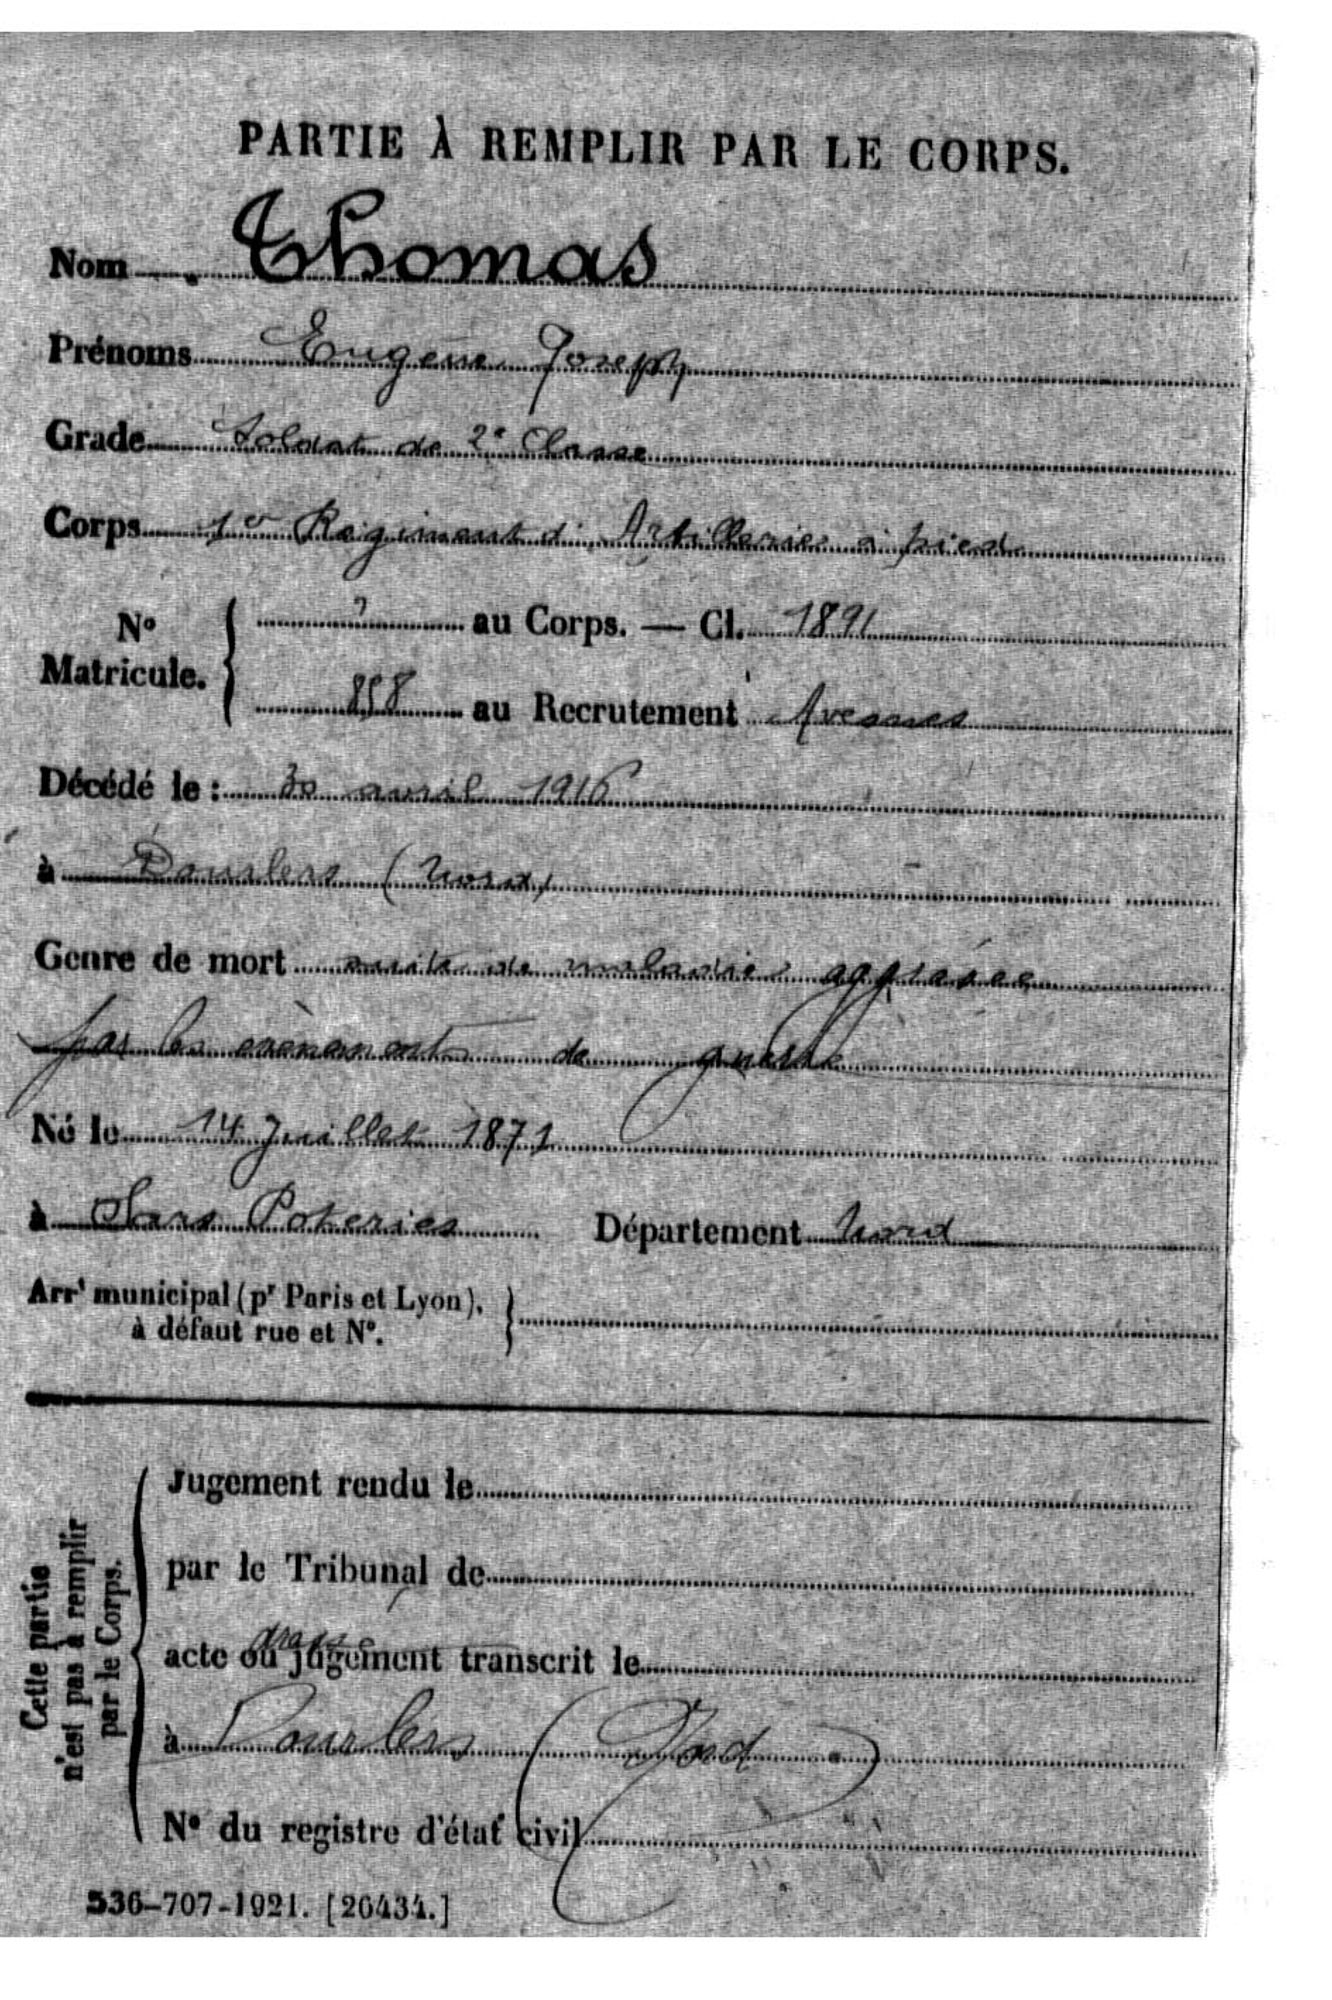 PARTIE À REMPLIR PAR LE CORPS.
Nom Thomas
Prénoms Eugène Joseph
Grade Soldat de 2e Classe
Corps 1er Régiment d'Artillerie à pied
No Matricule. { ? au Corps. — Cl. 1891
858 au Recrutement Avesnes
Décédé le : 30 avril 1916
à Dourlers (Nord)
Genre de mort suite de maladie aggravée
par les evènements de guerre
Né le 14 Juillet 1871
à Sars Poteries Département Nord
Arrt municipal (pr Paris et Lyon),
à défaut rue et No. }
Cette partie
n'est pas à remplir
par le Corps.
Jugement rendu le
par le Tribunal de
acte ou jugement transcrit le
à Dourlers (Nord)
No du registre d'état civil
536-707-1921. [26434.]